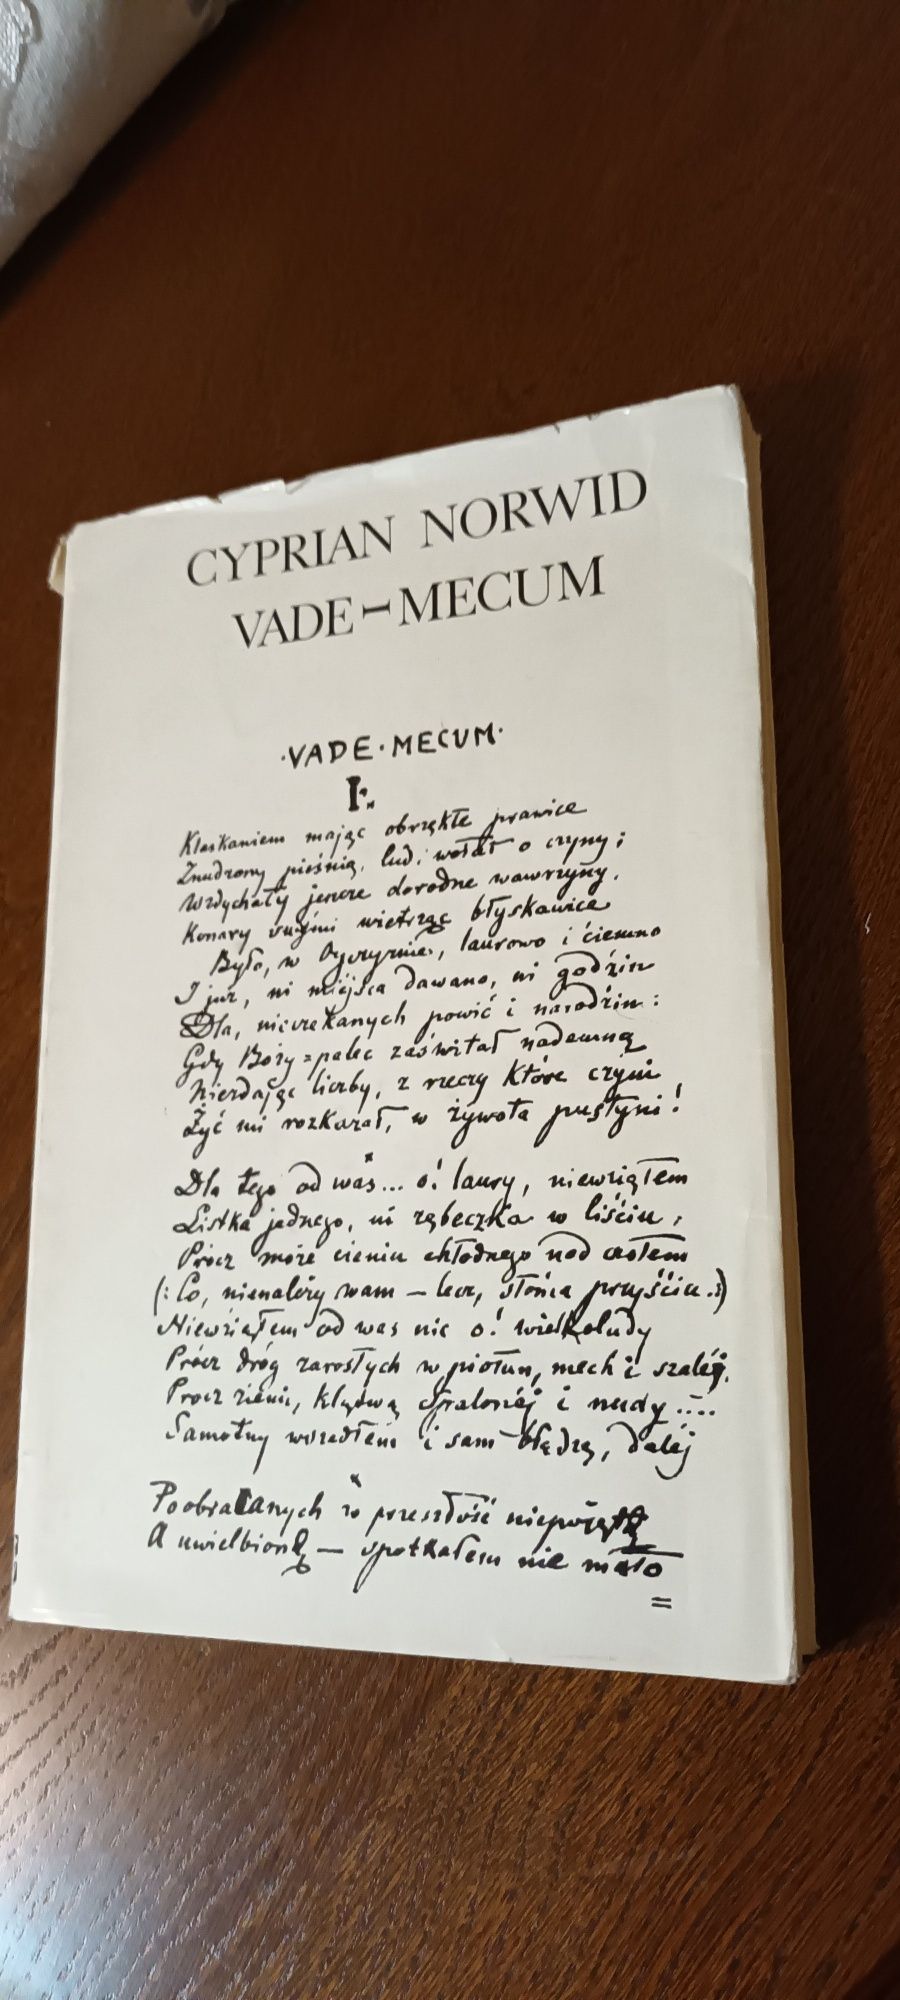 CYPRIAN NORWID
VADE-MECUM
·VADE·MECUM·
I.
Klaskaniem mając obrzękłe prawice
Znudzony pieśnią, lud, wołał o czyny;
Wzdychały jeszcze dorodne wawrzyny,
Konary swymi wietrząc błyskawice
Było, w Ojczyznie, laurowo i ćiemno
I już, ni miéjsca dawano, ni godzin
Dla, nieczekanych powić i narodzin:
Gdy Boży=palec zaświtał nademną
Niezdając liczby, z rzeczy które czyni
Żyć mi rozkazał, w żywota pustyni!
Dla tego od was... o! laury, niewziąłem
Listka jednego, ni ząbeczka w liściu,
Prócz może cieniu chłodnego nad czołem
(: Co, nienależy wam — lecz, słońca przyjściu.:)
Niewziąłem od was nic o! wielkoludy
Prócz dróg zarosłych w piołun, mech i szaléj,
Prócz ziemi, klątwą spalonéj i nudy....
Samotny wszedłem i sam błądzę, daléj
Poobracanych w przeszłość niepojętą
A uwielbioną — spotkałem nie mało
=